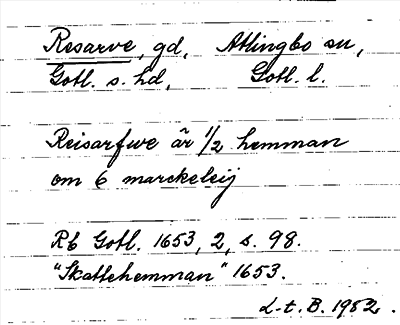 Resarve, gd, Atlingbo sn,
Gotl. s. hd, Gotl. l.
Reisarfwe är 1/2 hemman
om 6 marckeleij
Rb Gotl. 1653, 2, s. 98.
"Skattehemman" 1653.
L-t. B. 1952.